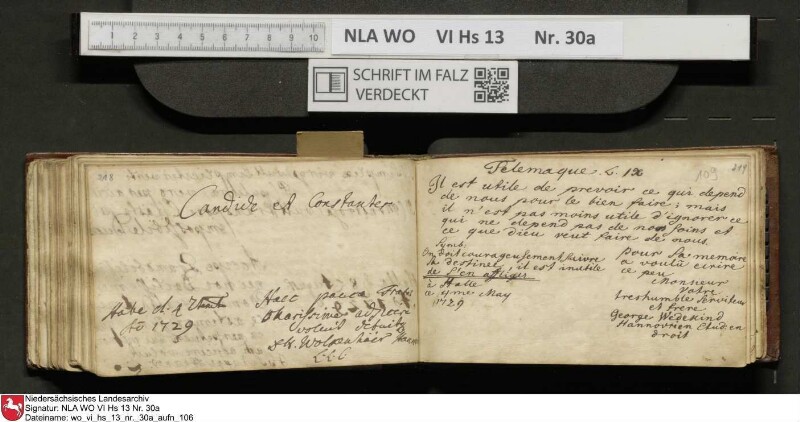 0 1 2 3 4 5 6 7 8 9 10
NLA WO VI Hs 13 Nr. 30a
SCHRIFT IM FALZ
VERDECKT
218
Candide et Constanter
Halae d. 9
Ao 1729
Haec pauca
adjicere
voluit debuit
LLC
109
219
Telemaque. L. IX
Il est utile de prevoir ce qui depend
de nous pour le bien faire; mais
il n'est pas moins utile d'ignorer ce
qui ne depend pas de nos soins et
ce que dieu veut faire de nous.
Symb.
On doit courageusement suivre
Sa destineé, il est inutile
de s'en affliger
à Halle
ce 9me May
1729
Pour Sa memoire
a voulu ecrire
ce peu
Monsieur
Votre
treshumble Serviteur
et frere
Georges Wedekind
Hannovrien Etud en
droit
Niedersächsisches Landesarchiv
Signatur: NLA WO VI Hs 13 Nr. 30a
Dateiname: wo_vi_hs_13_nr._30a_aufn_106